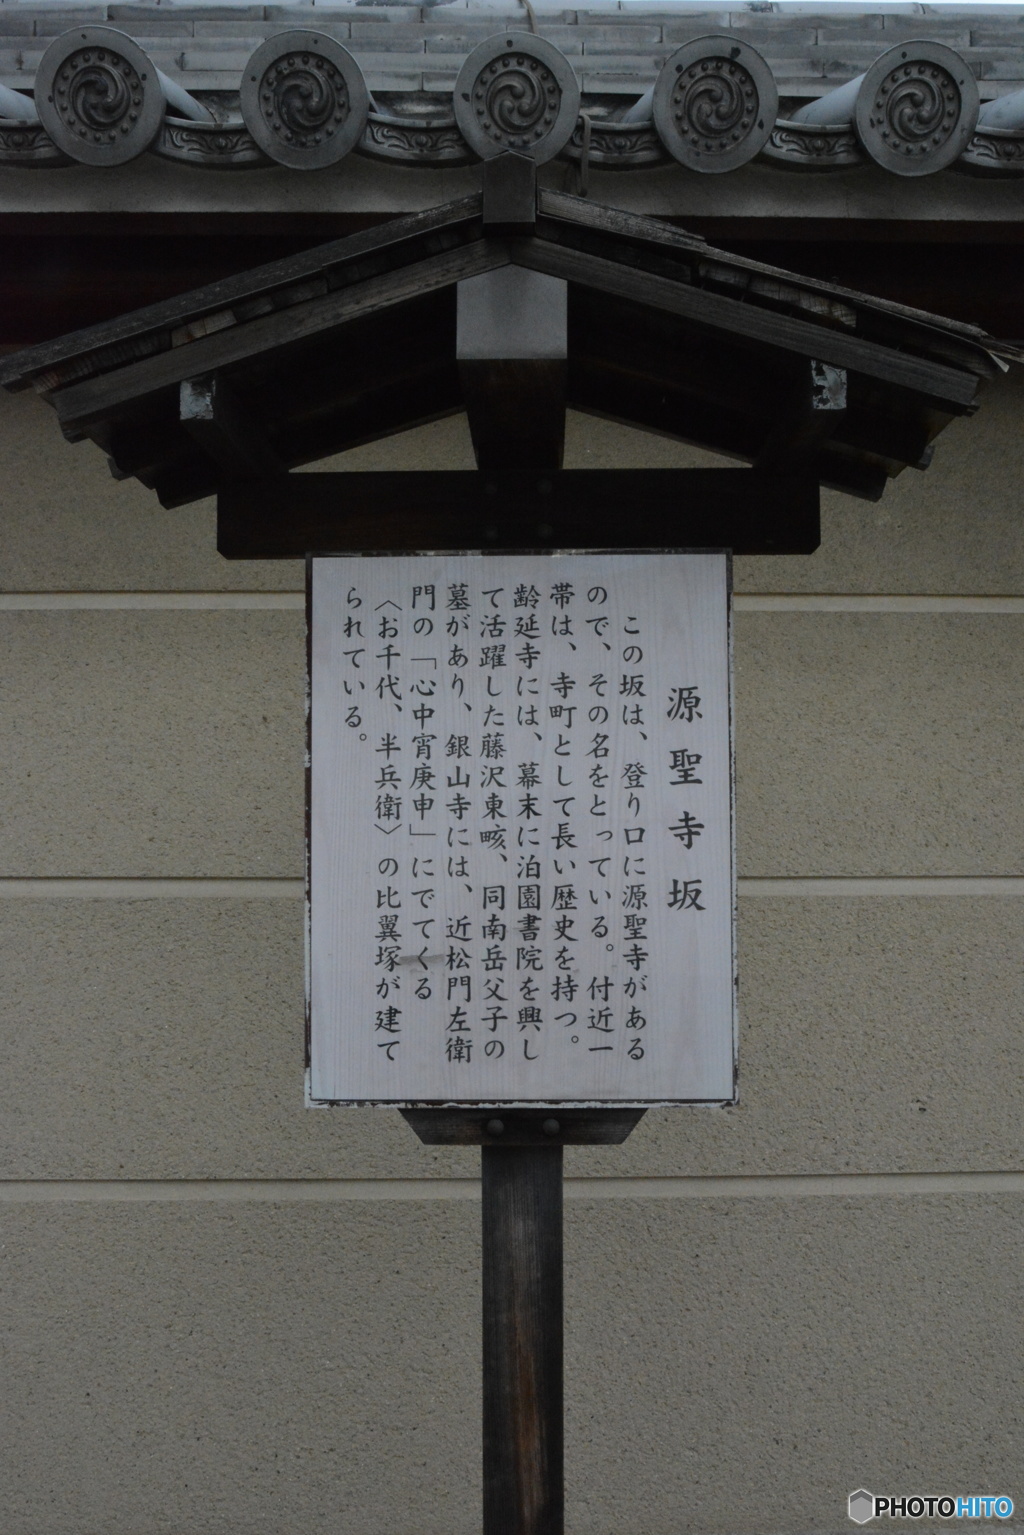 源聖寺坂
この坂は、登り口に源聖寺がある
ので、その名をとっている。付近一
帯は、寺町として長い歴史を持つ。
齢延寺には、幕末に泊園書院を興し
て活躍した藤沢東畡、同南岳父子の
墓があり、銀山寺には、近松門左衛
門の「心中宵庚申」にでてくる
〈お千代、半兵衛〉の比翼塚が建て
られている。
PHOTOHITO